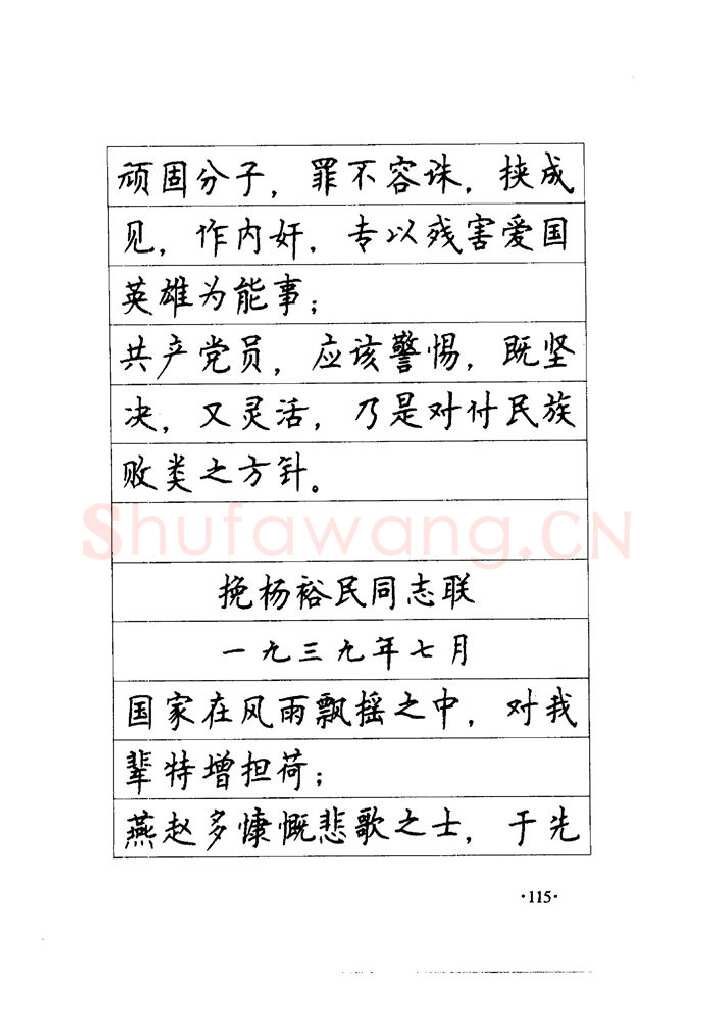 顽固分子，罪不容诛，挟成
见，作内奸，专以残害爱国
英雄为能事；
共产党员，应该警惕，既坚
决，又灵活，乃是对付民族
败类之方针。
Shufawang.CN
挽杨裕民同志联
一九三九年七月
国家在风雨飘摇之中，对我
辈特增担荷；
燕赵多慷慨悲歌之士，于先
·115·